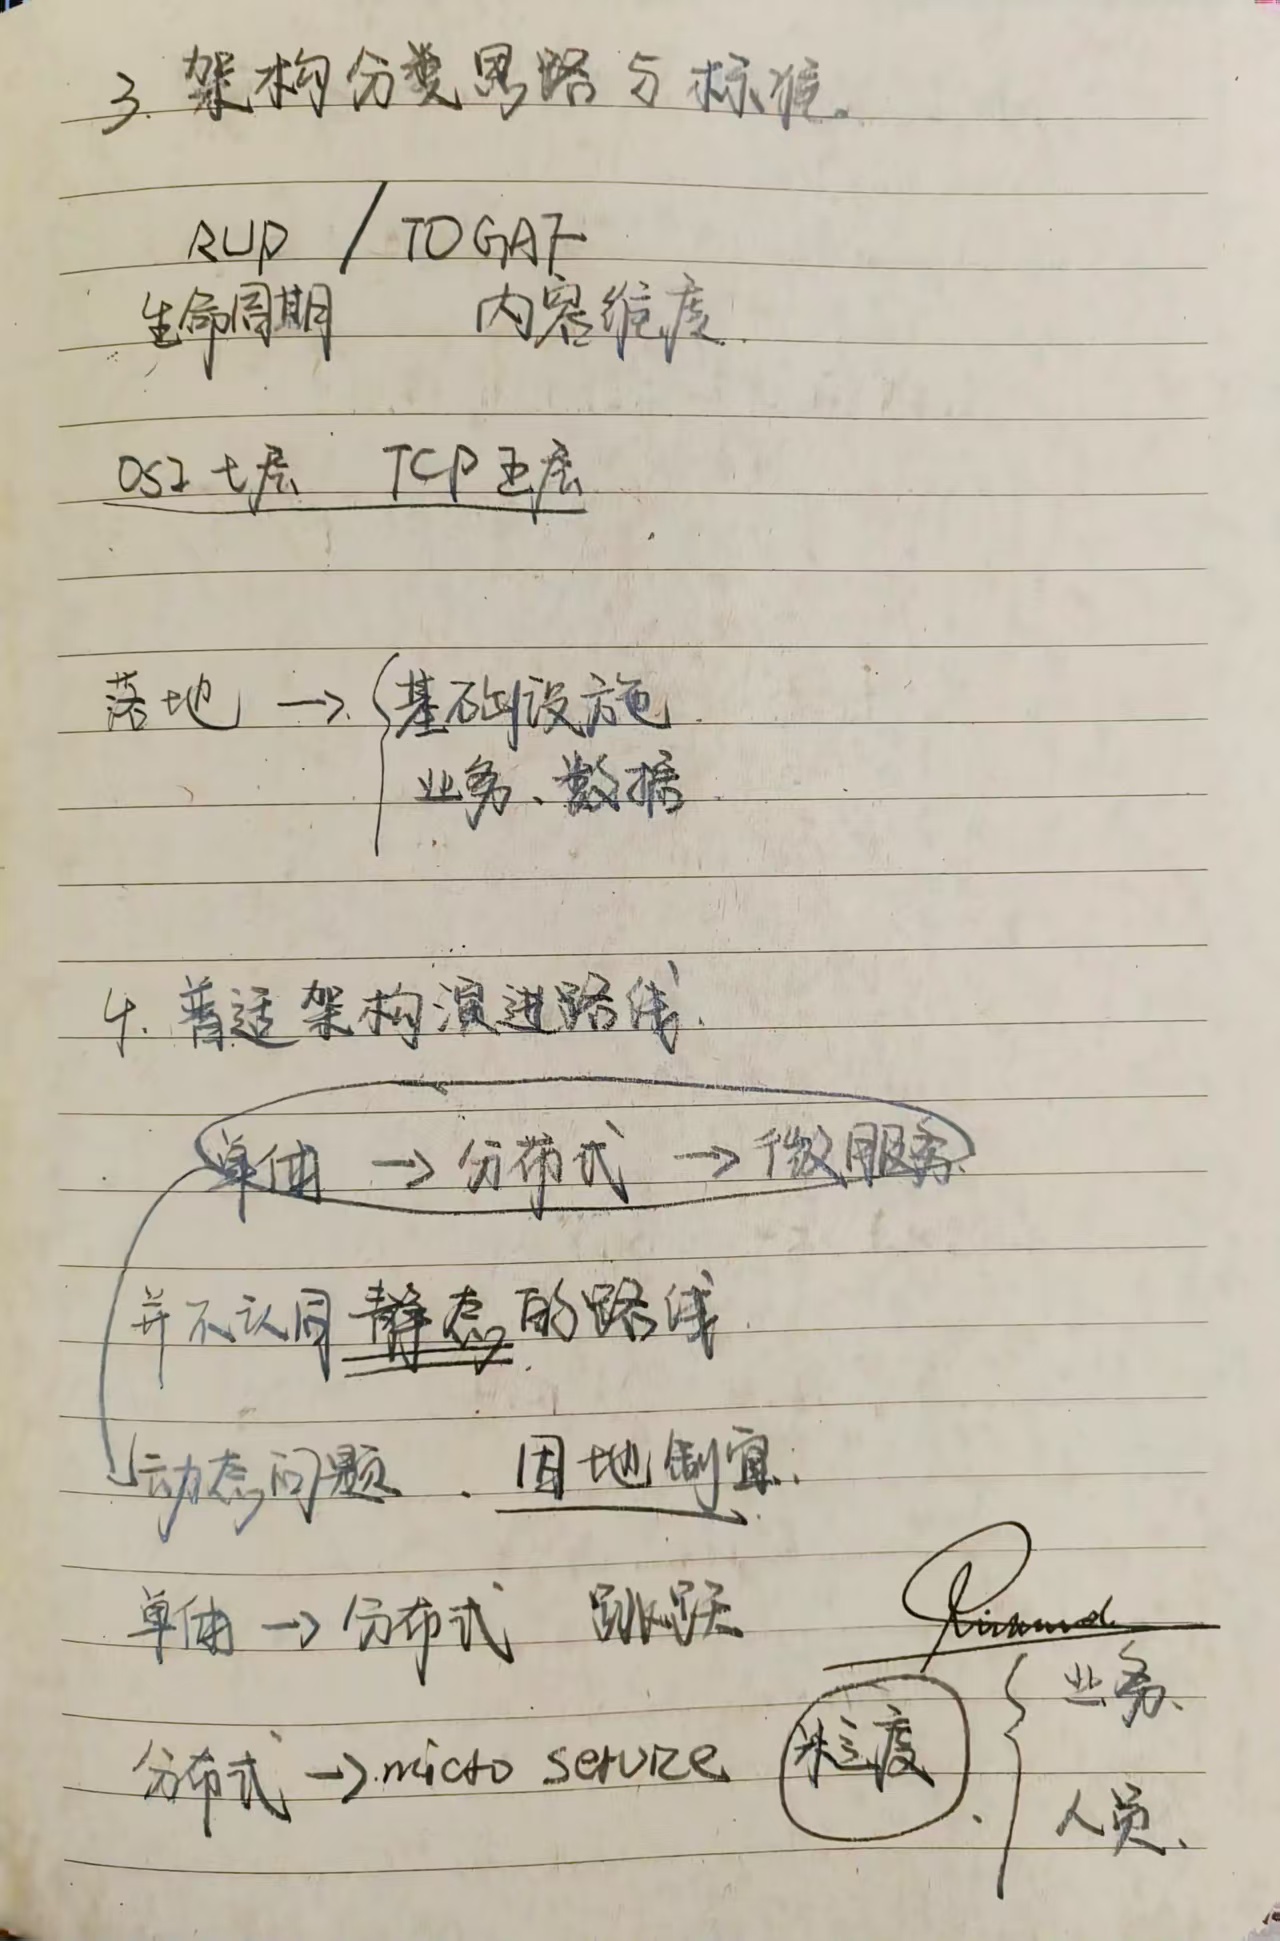 3. 架构分类思路与标准.
RUP / TOGAF
生命周期 内容维度.
OSI 七层 TCP 五层
落地 → { 基础设施.
业务、数据.
4. 普适架构演进路线.
单体 → 分布式 → 微服务
并不认同静态的路线.
动态问题. 因地制宜.
单体 → 分布式 跳跃
分布式 → micro service 粒度
{ 业务、
人员、